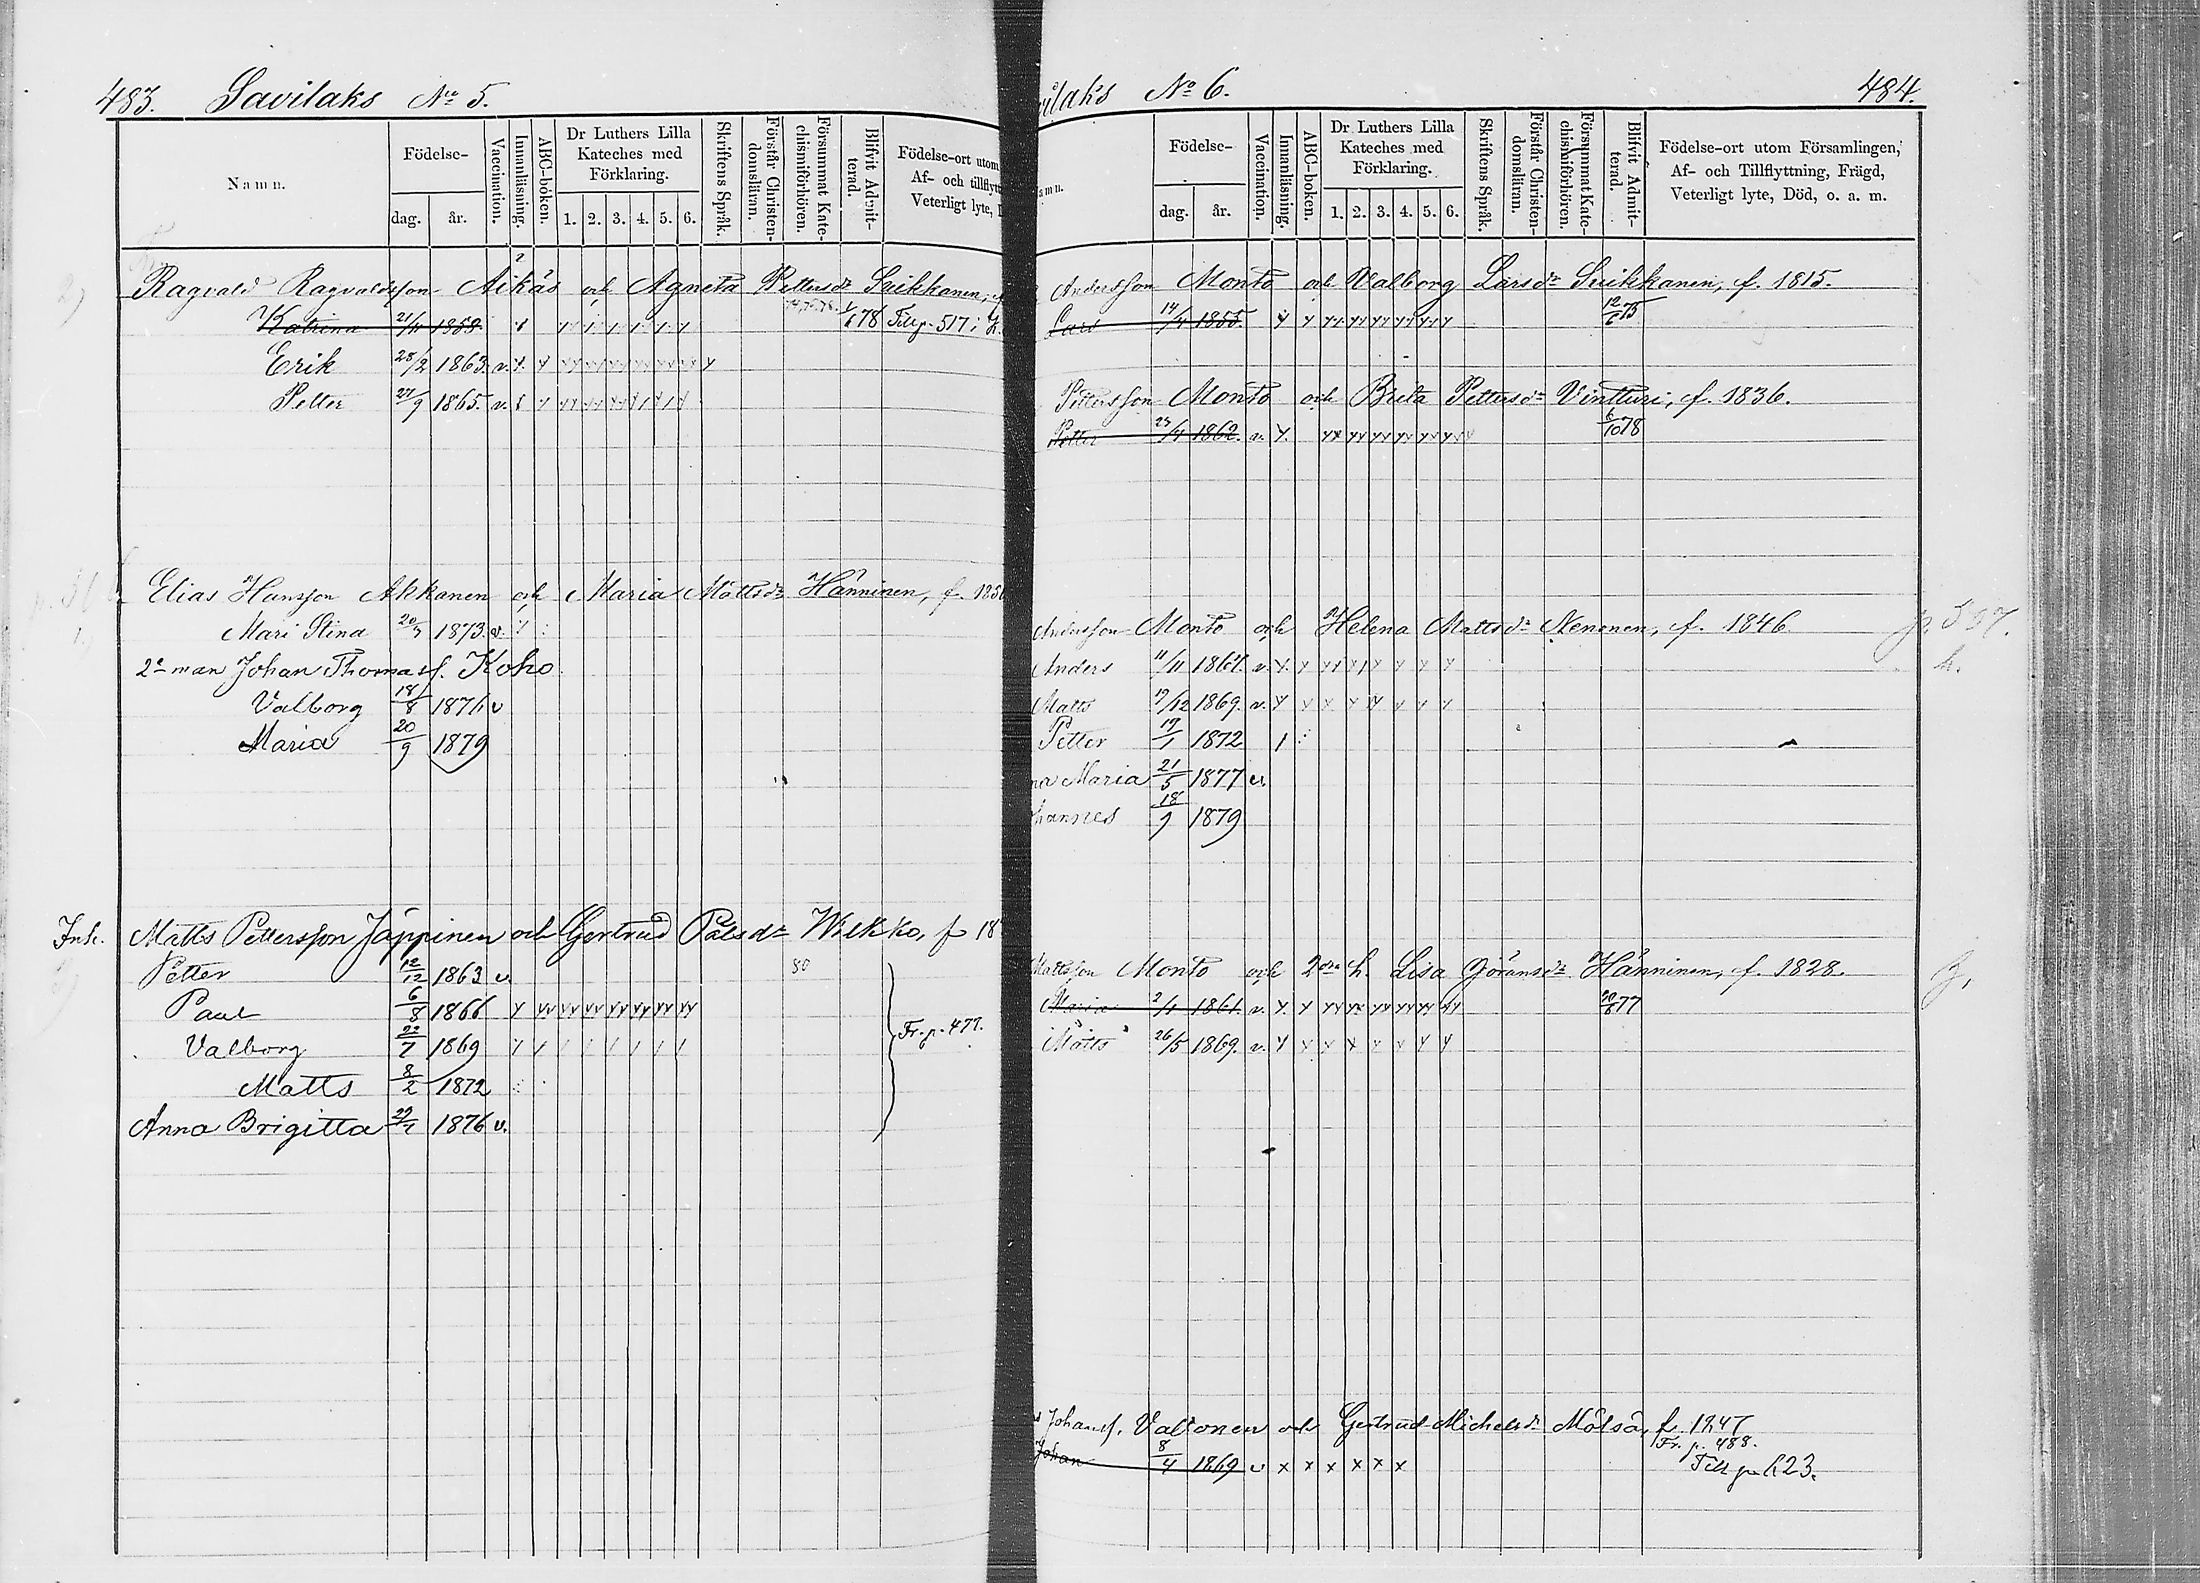 483. Savilaks No 5.
Namn. Födelse- dag. år. Vaccination. Innanläsning. ABC-boken. Dr Luthers Lilla Kateches med Förklaring. 1. 2. 3. 4. 5. 6. Skriftens Språk. Förstår Christendomsläran. Försummat Katechismiförhören. Blifvit Admitterad. Födelse-ort utom Af- och tillflytt Veterligt lyte,
Ragvald Ragvaldsson Äikäs och Agneta Pettersdr Suikkanen,
Katrina 21/11 1858. 1/6 78 Till p. 517 i
Erik 28/2 1863. v.
Petter 27/9 1865. v.
Elias Hansson Akkanen och Maria Mattsdr Hänninen, f. 185
Mari Stina 20/7 1873. v.
2e man Johan Thomass. Koho
Valborg 18/8 1876 v
Maria 20/9 1879
Inh. Matts Pettersson Jäppinen och Gertrud Pålsdr Wilkko, f 18
Petter 12/12 1863 v. 80
Paul 6/8 1866
Valborg 22/7 1869 Fr. p. 477.
Matts 8/2 1872
Anna Brigitta 29/7 1876 v.
laks No 6. 484.
amn. Födelse- dag. år. Vaccination. Innanläsning. ABC-boken. Dr Luthers Lilla Kateches med Förklaring. 1. 2. 3. 4. 5. 6. Skriftens Språk. Förstår Christendomsläran. Försummat Katechismiförhören. Blifvit Admitterad. Födelse-ort utom Församlingen, Af- och Tillflyttning, Frägd, Veterligt lyte, Död, o. a. m.
Andersson Monto och Valborg Larsdr Suikkanen, f. 1815.
Lars 14/4 1855. 12/6 75
Pettersson Monto och Brita Pettersdr Vintturi, f. 1836.
Petter 23/4 1862. v. 6/10 78
Andersson Monto och Helena Mattsdr Nenonen, f. 1846 p. 557.
Anders 11/11 1867. v. h.
Matts 19/12 1869. v.
Petter 19/1 1872
na Maria 21/5 1877 v.
hannes 18/9 1879
Mattsson Monto och 2dra h. Lisa Göransdr Hänninen, f. 1828.
Maria 2/4 1861. v. 20/6 77
Matts 26/5 1869. v.
Johanss. Valtonen och Gertrud Michelsdr Mölsä, f. 1847
Fr. p. 488.
Johan 8/4 1869 v x x x x x x Till p. 623.